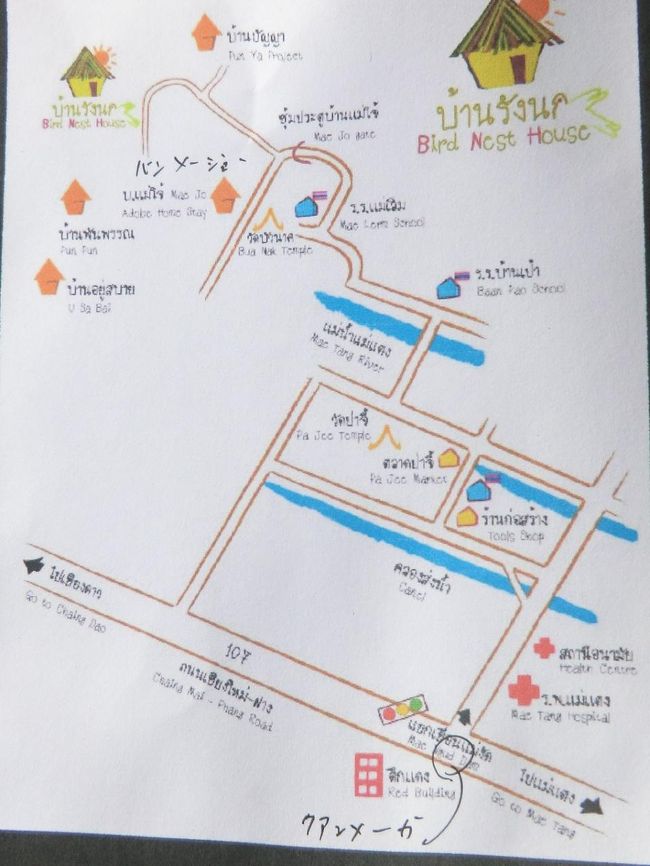 บ้านปัญญา
Pun Ya Project
บ้านรังนก
Bird Nest House
บ้านรังนก
Bird Nest House
ซุ้มประตูบ้านแม่โจ้
Mae Jo gate
バンメージョー
บ.แม่โจ้ Mae Jo
Adobe Home Stay
บ้านพันพรรณ
Pun Pun
วัดบัวนาค
Bua Nak Temple
ร.ร.แม่เลิม
Mae Lerm School
ร.ร.บ้านเป้า
Baan Pao School
บ้านอยู่สบาย
U Sa Bai
แม่น้ำแม่แตง
Mae Tang River
วัดปาจี้
Pa Jee Temple
ตลาดปาจี้
Pa Jee Market
ร้านก่อสร้าง
Tools Shop
คลองส่งน้ำ
Canal
ไปเชียงดาว
Go to Chaing Dao
107
ถนนเชียงใหม่-ฝาง
Chaing Mai - Phang Road
สถานีอนามัย
Health Centre
ร.พ.แม่แตง
Mae Tang Hospital
แยกเขื่อนแม่งัด
Mae Dam
ตึกแดง
Red Building
ไปแม่แตง
Go to Mae Tang
クアンメーガ